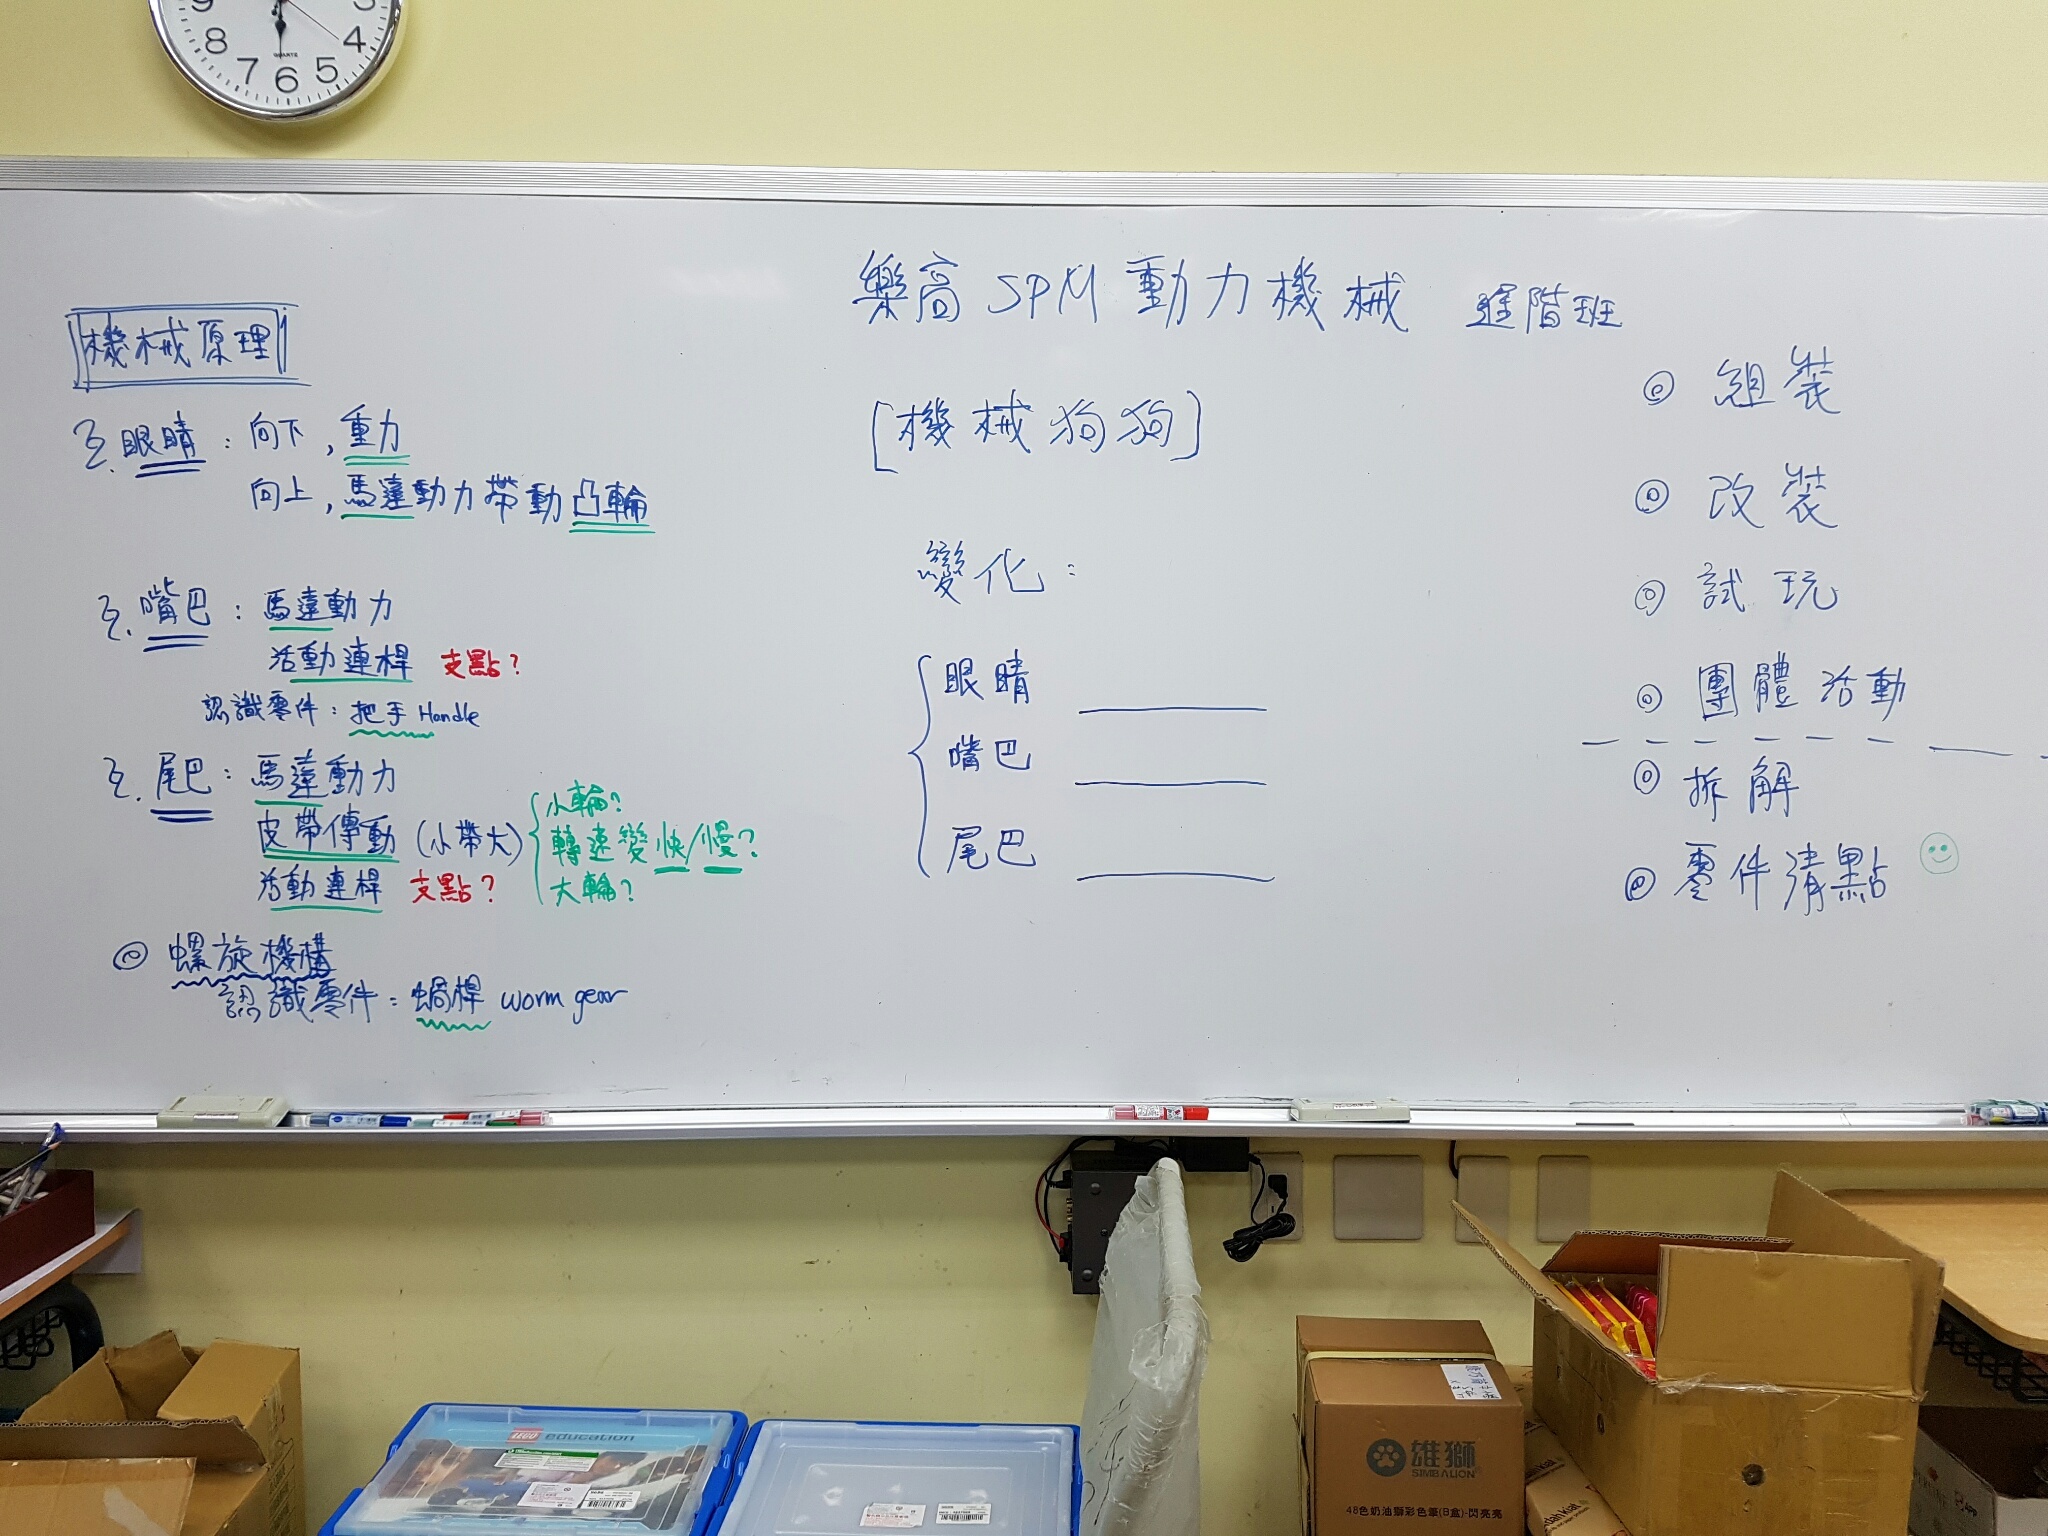 9
8
7
6
5
4
3
QUARTZ
樂高 SPM 動力機械 進階班
機械原理
眼睛：向下，重力
向上，馬達動力帶動凸輪
嘴巴：馬達動力
活動連桿 支點？
認識零件：把手 Handle
尾巴：馬達動力
皮帶傳動（小帶大）
小輪？
轉速變快/慢？
大輪？
活動連桿 支點？
◎ 螺旋機構
認識零件：蝸桿 worm gear
[機械狗狗]
變化：
眼睛
嘴巴
尾巴
◎ 組裝
◎ 改裝
◎ 試玩
◎ 團體活動
◎ 拆解
◎ 零件清點
LEGO education
雄獅
SIMBALION
48色奶油獅彩色筆(B盒)-閃亮亮